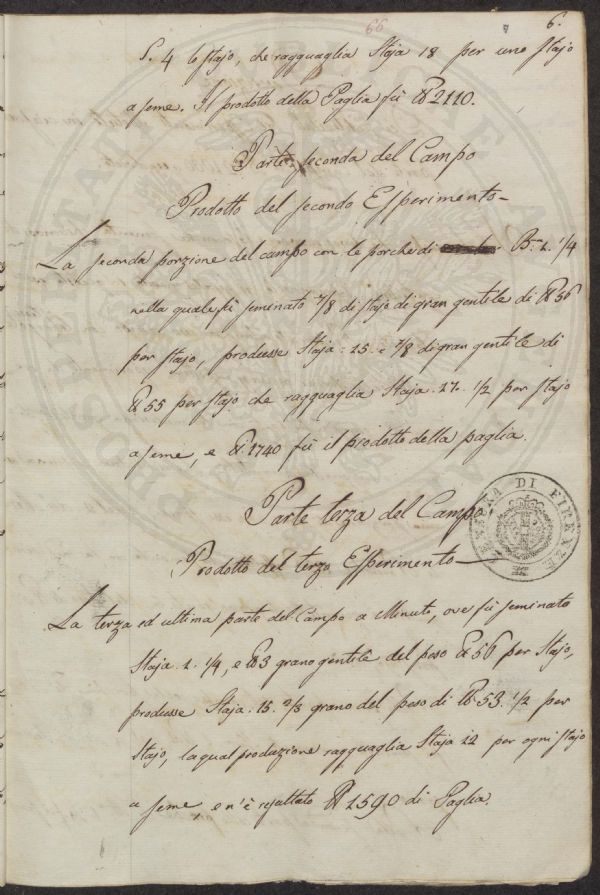 66
6.
S. 4 lo stajo, che ragguaglia Staja 18 per uno stajo
a seme. Il prodotto della Paglia fù ℔ 2110.
Parte seconda del Campo
Prodotto del secondo Esperimento
La seconda porzione del campo con le porche di B.a 2. 1/4
nella quale fù seminato 7/8 di stajo di gran gentile di ℔ 56
per stajo, produsse Staja: 25. e 7/8 di gran gentile di
℔ 55 per stajo che ragguaglia Staja. 27. 1/2 per stajo
a seme, e ℔ 1740 fù il prodotto della paglia.
Parte terza del Campo
Prodotto del terzo Esperimento
La terza ed ultima parte del Campo a Minuto, ove fù seminato
Staja 1. 1/4, e ℔ 3 grano gentile del peso ℔ 56 per Stajo,
produsse Staja. 15. 2/3 grano del peso di ℔ 53. 1/2 per
Stajo, la qual produzione ragguaglia Staja 12 per ogni stajo
a seme, e n'è resultato ℔ 1590 di Paglia.
DI FIRENZE